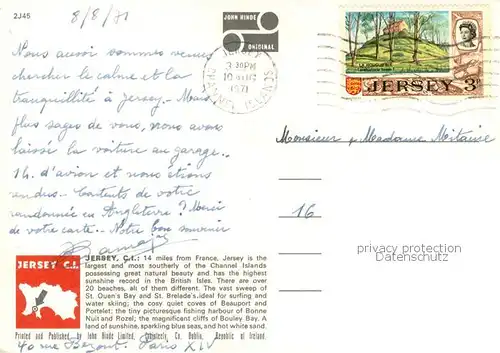 2J45
8/8/71
JOHN HINDE
ORIGINAL
JERSEY
3-30PM
10 AUG
1971
CHANNEL ISLANDS
JERSEY 3p
Nous aussi sommes venus
chercher le calme et la
tranquillité à Jersey. Mais
plus sages de vous, nous avons
laissé la voiture au garage..
1h. d'avion et nous étions
rendus. Contents de votre
randonnée en Angleterre? Merci
de votre carte.. Notre bon souvenir
Monsieur & Madame Mitaine
16
privacy protection
Datenschutz
JERSEY C.I.
JERSEY, C.I.: 14 miles from France, Jersey is the
largest and most southerly of the Channel Islands
possessing great natural beauty and has the highest
sunshine record in the British Isles. There are over
20 beaches, all of them different. The vast sweep of
St. Ouen's Bay and St. Brelade's, ideal for surfing and
water skiing; the cosy quiet coves of Beauport and
Portelet; the tiny picturesque fishing harbour of Bonne
Nuit and Rozel; the magnificent cliffs of Bouley Bay. A
land of sunshine, sparkling blue seas, and hot white sand.
Printed and Published by John Hinde Limited, Cabinteely, Co. Dublin, Republic of Ireland.
40 rue Bezout. Paris XIV